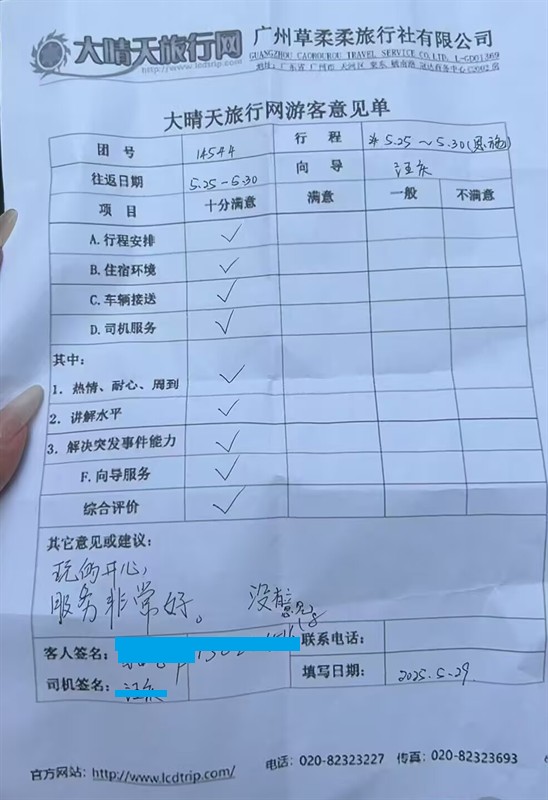 大晴天旅行网 广州草柔柔旅行社有限公司
http://www.lcdtrip.com GUANGZHOU CAOROUROU TRAVEL SERVICE CO.LTD. L-GD01369
大晴天旅行网游客意见单
团号 14544 行程 5.25～5.30(恩施)
往返日期 5.25-5.30 向导
项目 十分满意 满意 一般 不满意
A.行程安排 ✓
B.住宿环境 ✓
C.车辆接送 ✓
D.司机服务 ✓
其中:
1. 热情、耐心、周到 ✓
2. 讲解水平 ✓
3. 解决突发事件能力 ✓
F.向导服务 ✓
综合评价 ✓
其它意见或建议:
玩的开心,
服务非常好。 没有意见。
客人签名: 联系电话:
司机签名: 填写日期: 2025.5.29
官方网站: http://www.lcdtrip.com/ 电话: 020-82323227 传真: 020-82323693